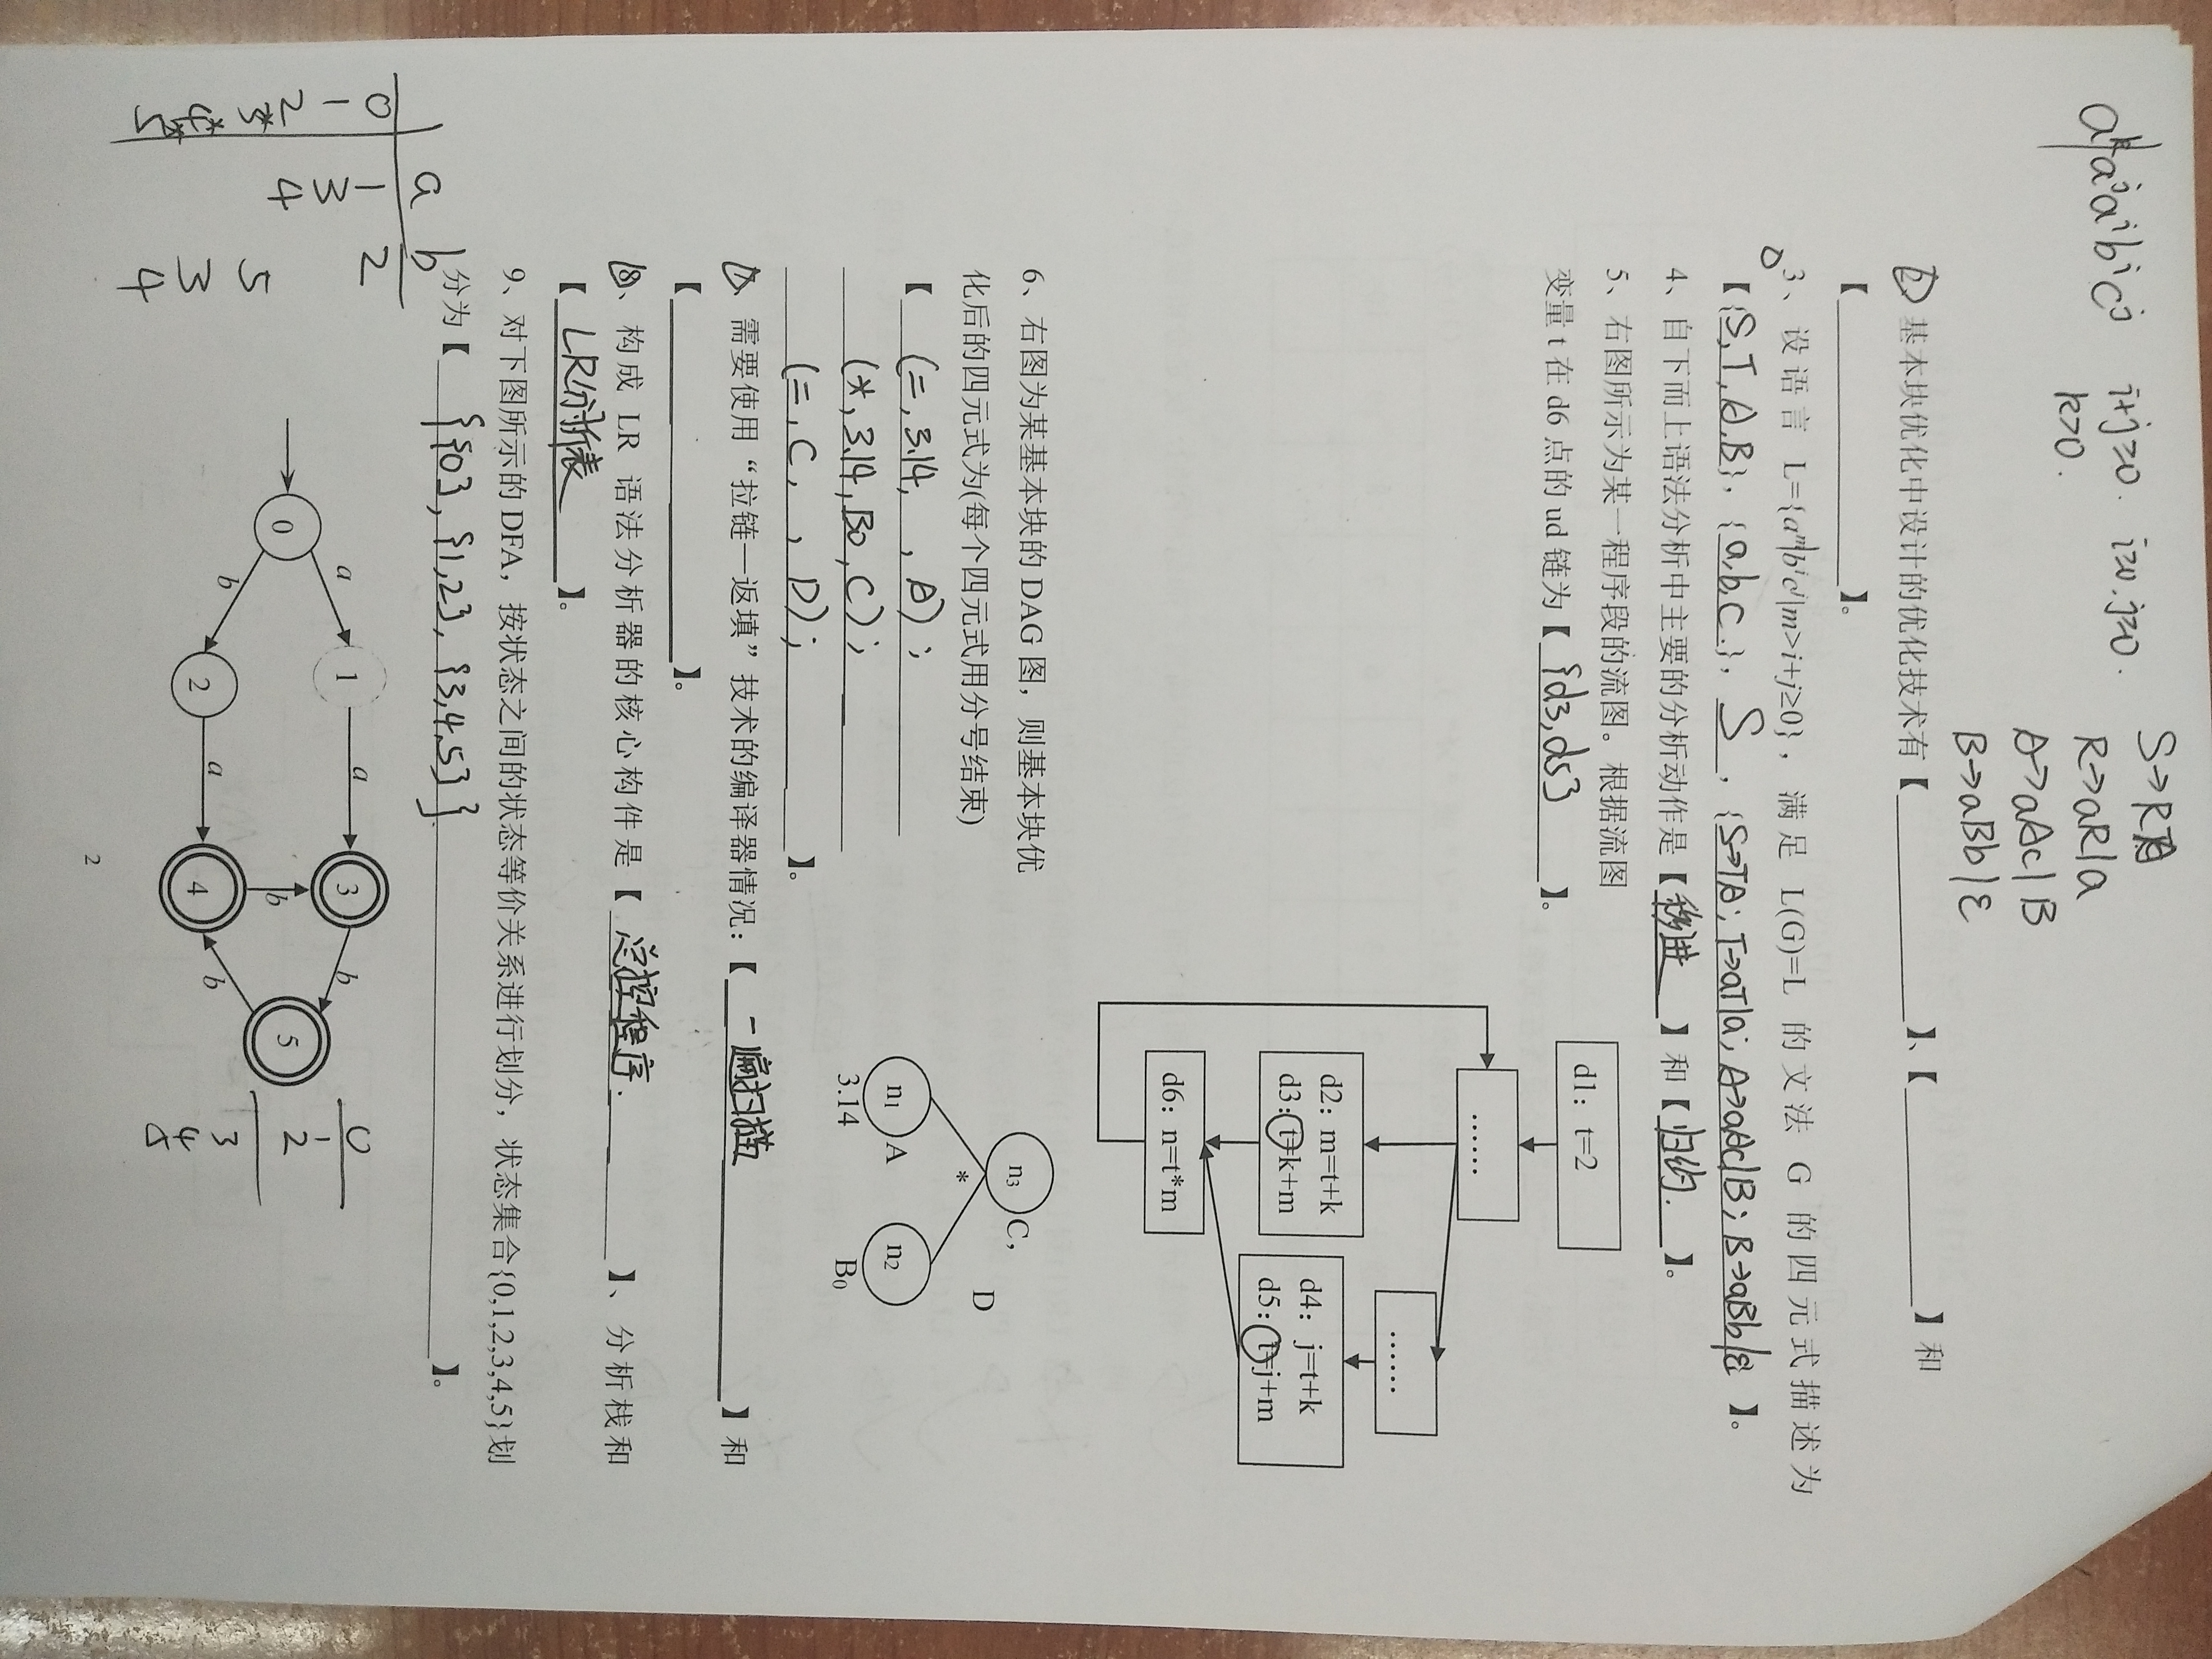 aᵏaʲaⁱbⁱcʲ i+j≥0. i≥0, j≥0.
k>0.
S→RA
R→aR|a
A→aAc|B
B→aBb|ε
2、基本块优化中设计的优化技术有【 】、【 】和
【 】。
3、设语言 L={aᵐbⁱcʲ|m>i+j≥0}，满足 L(G)=L 的文法 G 的四元式描述为
【{S,T,A,B}, {a,b,c}, S, {S→TA; T→aT|a; A→aAc|B; B→aBb|ε} 】。
4、自下而上语法分析中主要的分析动作是【移进】和【归约.】。
5、右图所示为某一程序段的流图。根据流图
变量 t 在 d6 点的 ud 链为【{d3,d5}】。
d1: t=2
……
……
d2: m=t+k
d3: t=k+m
d4: j=t+k
d5: t=j+m
d6: n=t*m
6、右图为某基本块的 DAG 图，则基本块优
化后的四元式为(每个四元式用分号结束)
【 (=, 3.14, , A);
(*, 3.14, B0, C);
(=, C, , D); 】。
n3 C,
D
*
n1 A
3.14
n2
B0
7、需要使用“拉链—返填”技术的编译器情况:【一遍扫描】和
【 】。
8、构成 LR 语法分析器的核心构件是【总控程序.】、分析栈和
【LR分析表】。
9、对下图所示的 DFA，按状态之间的状态等价关系进行划分，状态集合{0,1,2,3,4,5}划
分为【{{0}, {1,2}, {3,4,5}}.】。
a b
0 1 2
1 3
2 4
3* 5
4* 3
5* 4
0
1
2
3
4
5
a
b
a
a
b
b
b
0
1
2
3
4
5
2